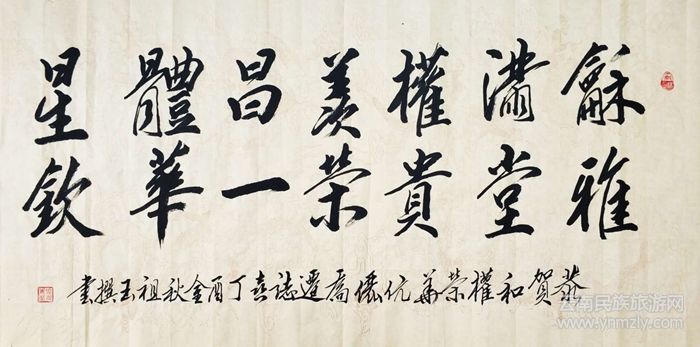 龢雅
滿堂
權貴
羨榮
昌一
體華
星欽
恭賀和權榮華伉儷喬遷誌喜丁酉金秋祖玉撰書
云南民族旅游网
www.ynmzly.com